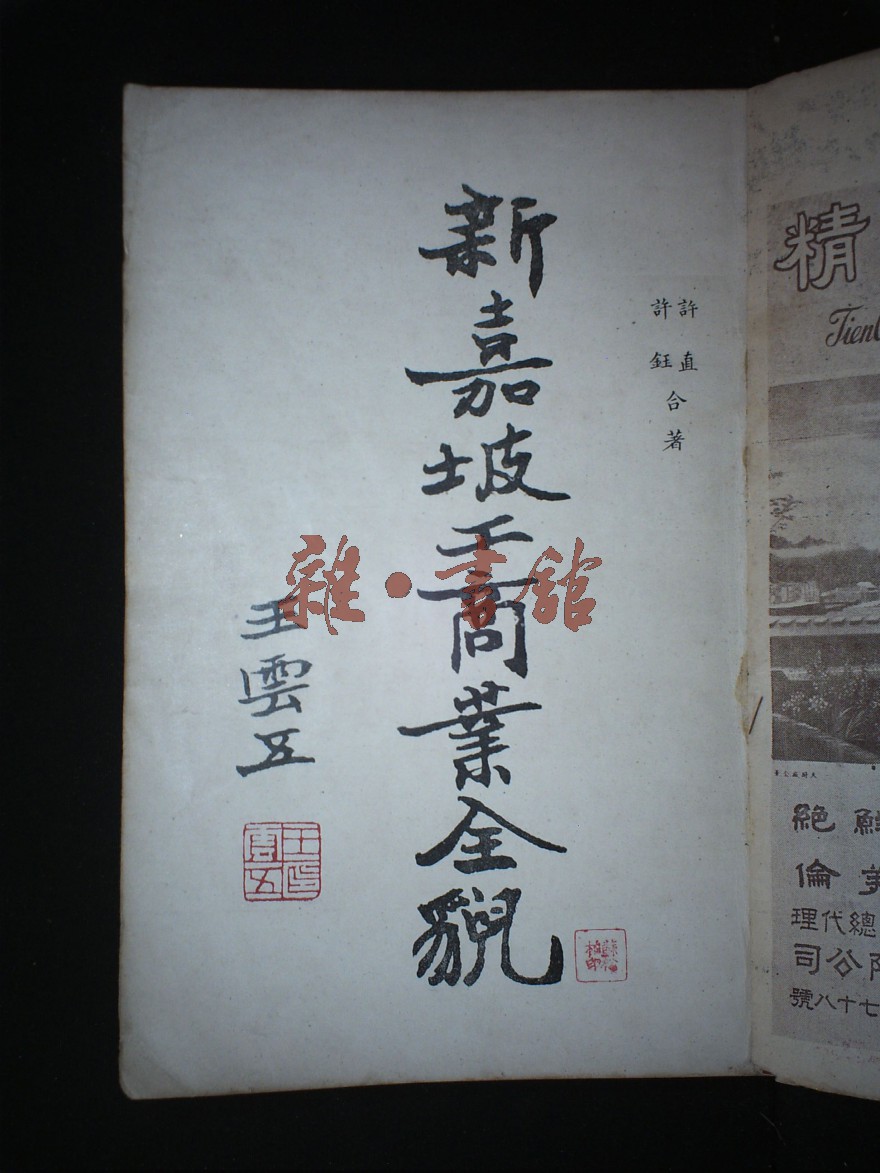 許直
許鈺
合著
新嘉坡工商業全貌
王雲五
王雲五印
雜·書館
精
Tien
絕
倫
總代理
公司
七十八號